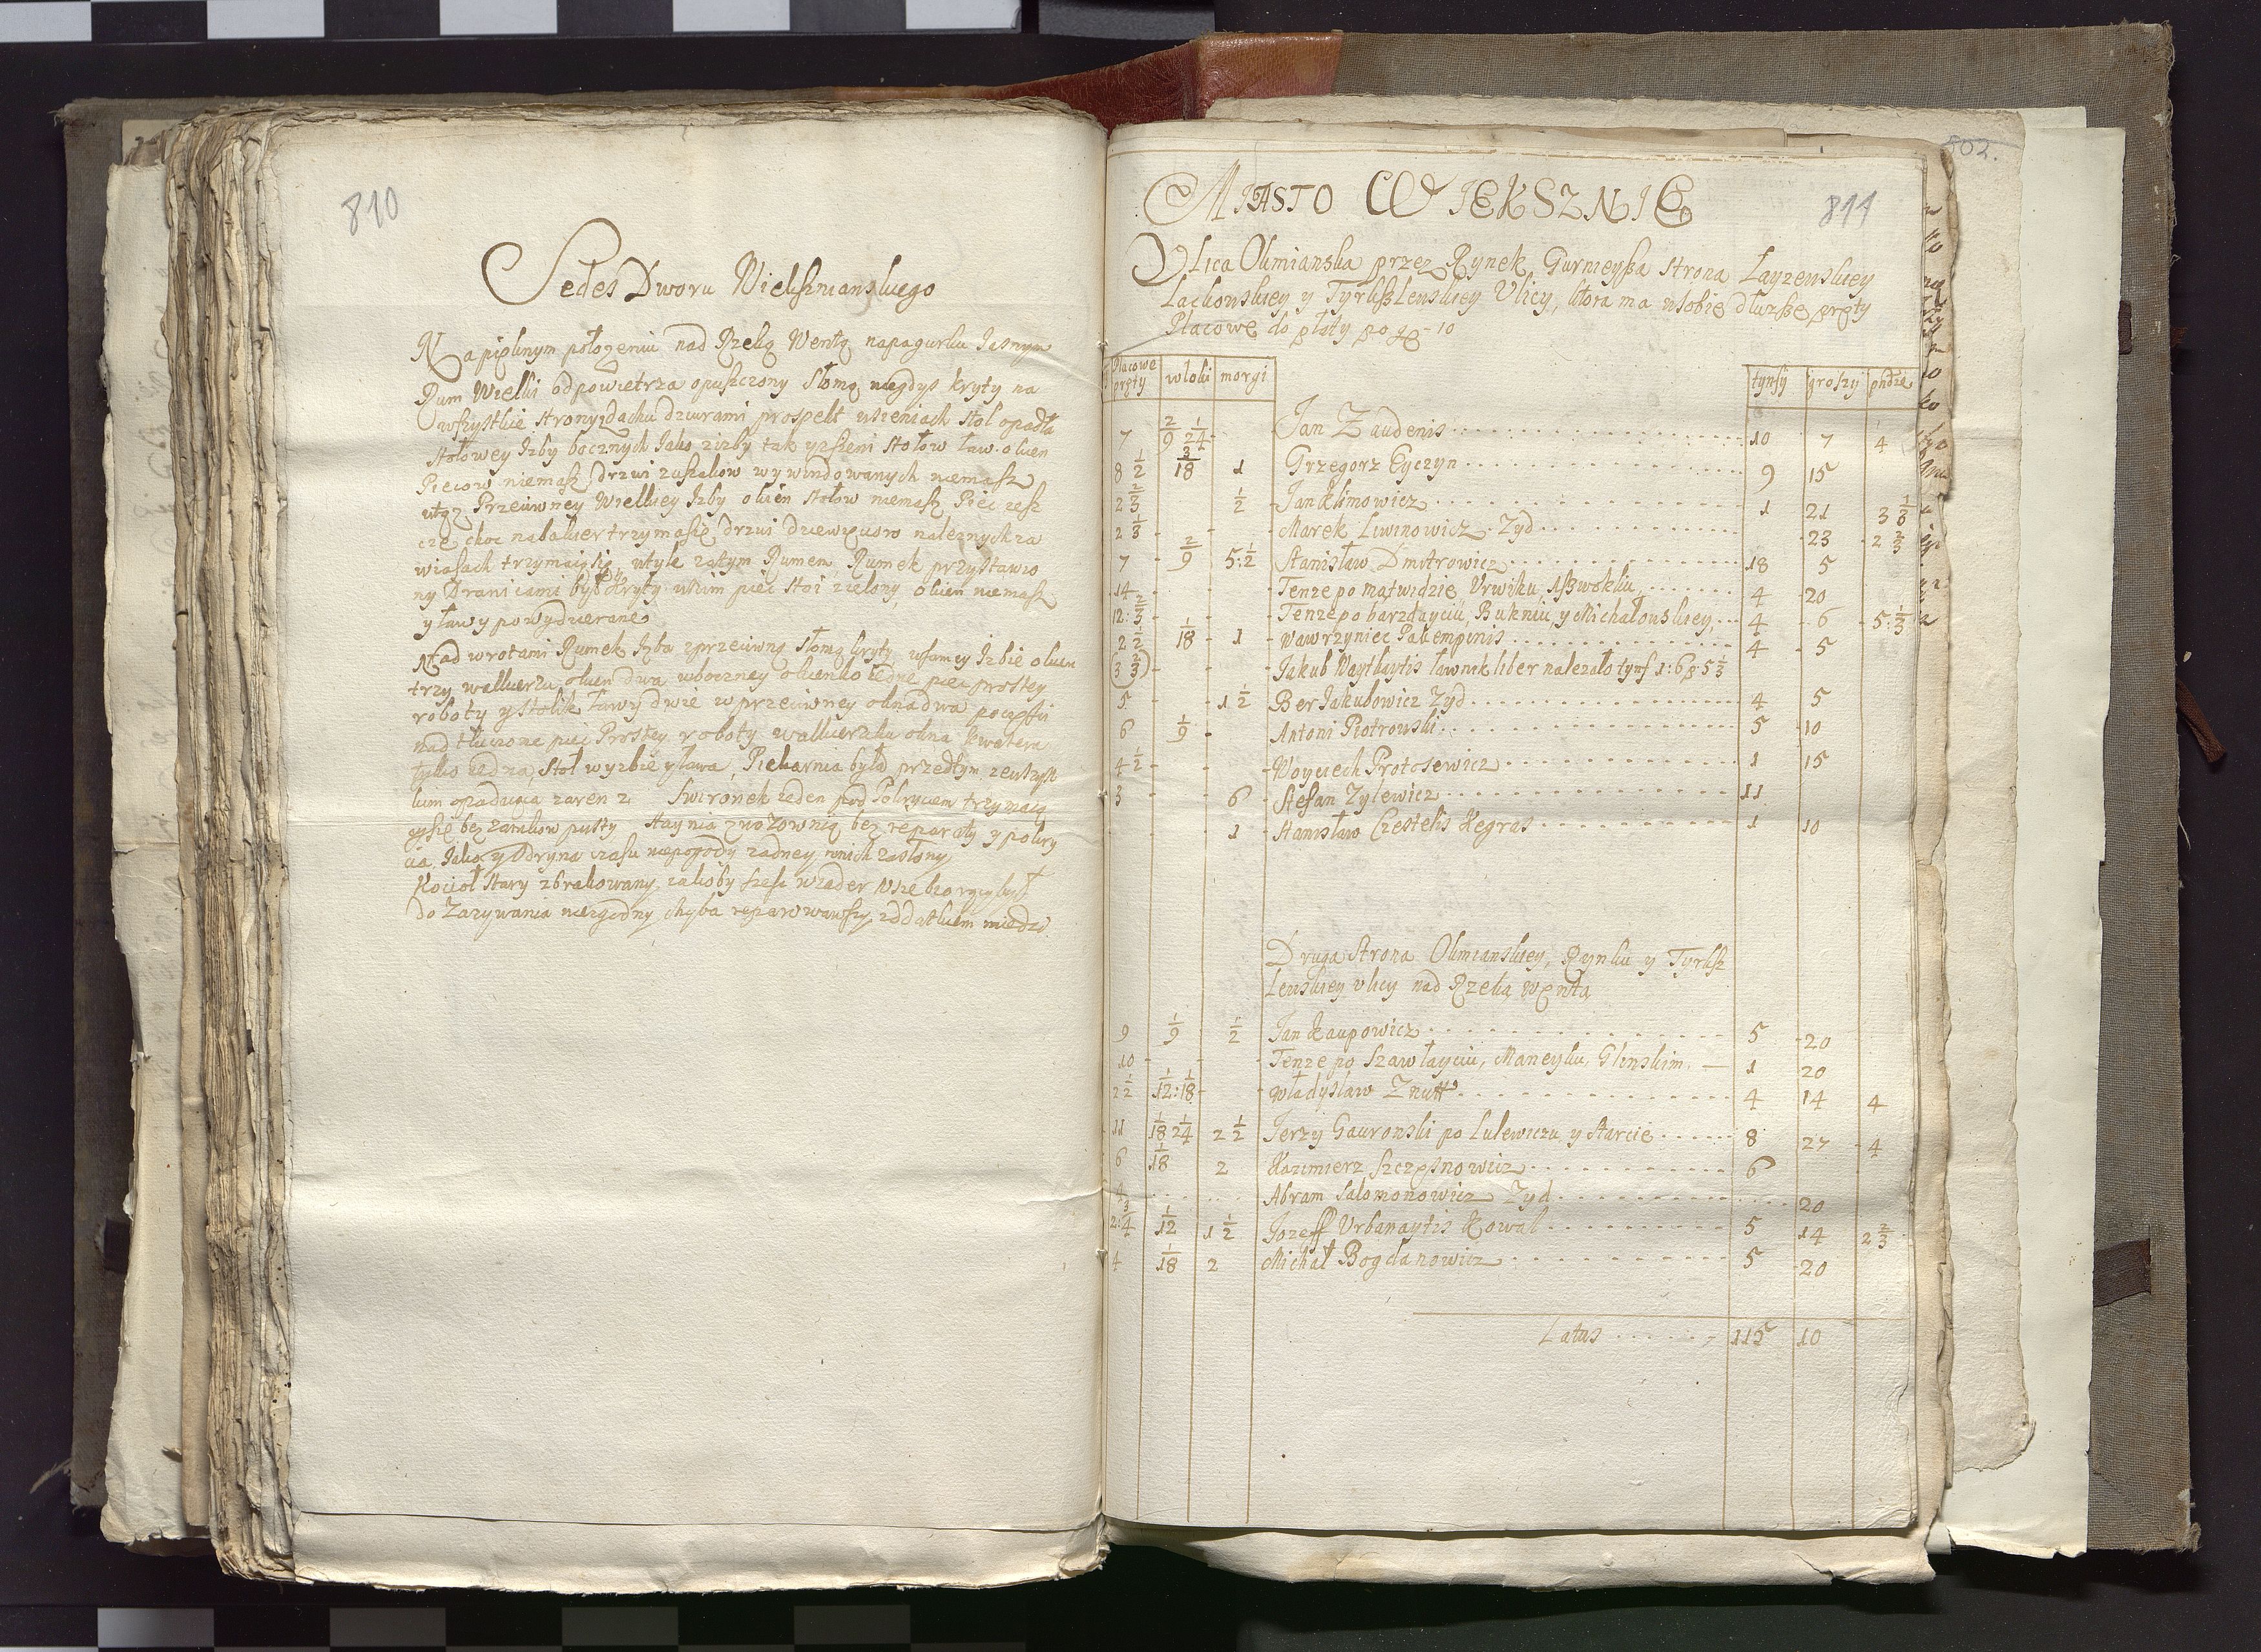 810
Sedes Dworu Wiekszmianskiego
Na pięknym położeniu nad Rzeką Wentą na pagurku Jasnym
Rum Wielki od powietrza opuszczony Słomą niegdys kryty na
wszystkie strony z dachu dziurami prospekt w sieniach stol opadła
stołowey Izby bocznych Jako z izby tak y z sieni stołow ław okien
Piecow niemasz, drzwi zuszakow wywindowanych niemasz
Przeciwney Wielkiey Izby okien stołow niemasz Piec iesz
cze choc nalakier trzyma się drzwi dziewięcioro należnych za
wiasach trzymaią się, w tyle zatym Rumem Rumek przystawio
ny Dranicami był kryty w nim piec stoi zielony, okien niemasz
y ławy powydzierane
Nad wrotami Rumek Izba z przeciwną słomą kryty, w samey Izbie okien
trzy w alkierzu okien dwa w boczney okienko iedne piec prostey
roboty y stolik ławy dwie w przeciwney okna dwa po części
nad tłuczone piec Prostey roboty w alkierzaku okna kwatera
tylko iedna, stol w yzbie y ława, Piekarnia była przedtym ze wszyst
kim opadaiąca zaren 2 Swironek ieden pod Pokryciem trzymaią
cy się bez zamkow pusty Staynia z wozownią bez reparaty y pokry
cia, Jako y Odryna czasu niepogody zadney w nich zasłony
Kocioł Stary zbrakowany, iakoby szesc wiader w sie biorący był
do Zazywania niezgodny chyba reparowawszy z dodatkiem miedzi
802.
811
MIASTO WIEKSZNIE
Vlica Okmianska przez Rynek Gurnieysza strona Layzewskiey
Lackowskiey y Tyrkszlewskiey Vlicy, ktora ma w sobie dłuzsze pręty
Placowe do płaty po g̃ - 10
Placowe pręty włoki morgi tynfy groszy phdzie
7 2/9 1/24 Jan Zaudenis 10 7 4
8 1/2 3/18 1 Grzegorz Eyczyn 9 15
2 2/3 1/2 Jan Klimowicz 1 21 3 1/8
2 1/3 Marek Liwinowicz Zyd 23 2 2/3
7 2/9 5:1/2 Stanisław Dmitrowicz 18 5
14 Tenze po matwidzie Vrwiku, Aszwokliu 4 20
12:2/3 Tenze po barzdayciu, Bukniu, y Michałowskiey 4 6 5:1/3
2 1/2 1/18 1 Wawrzyniec Pakempenis 4 5
(3 2/3) Jakub Waytkaytis ławnik liber nalezało tynf 1:6 p 5 1/3
5 1 1/2 Ber Jakubowicz Zyd 4 5
6 1/9 Antoni Piotrowski 5 10
4 1/2 Woyciech Protosewicz 1 15
3 6 Stefan Zylewicz 11
1 Stanisław Czestelis Hegras 1 10
Druga strona Okmianskiey, Rynku y Tyrksz
lewskiey vlicy nad Rzeką Wentą
9 1/9 1/2 Jan Kaupowicz 5 20
10 Tenze po Szawłayciu, Maneyku, Glinskim 1 20
2 1/2 1/12:1/18 Władysław Znutt 4 14 4
11 1/18 1/24 2 1/2 Jerzy Gauronski po Lulewiczu y Starcie 8 27 4
6 1/18 2 Kazimierz Szczęsnowicz 6
4 Abram Salomonowicz Zyd 20
2:3/4 1/12 1 1/2 Jozeff Vrbanaytis Kowal 5 14 2 2/3
4 1/18 2 Michał Bogdanowicz 5 20
Latus 115 10